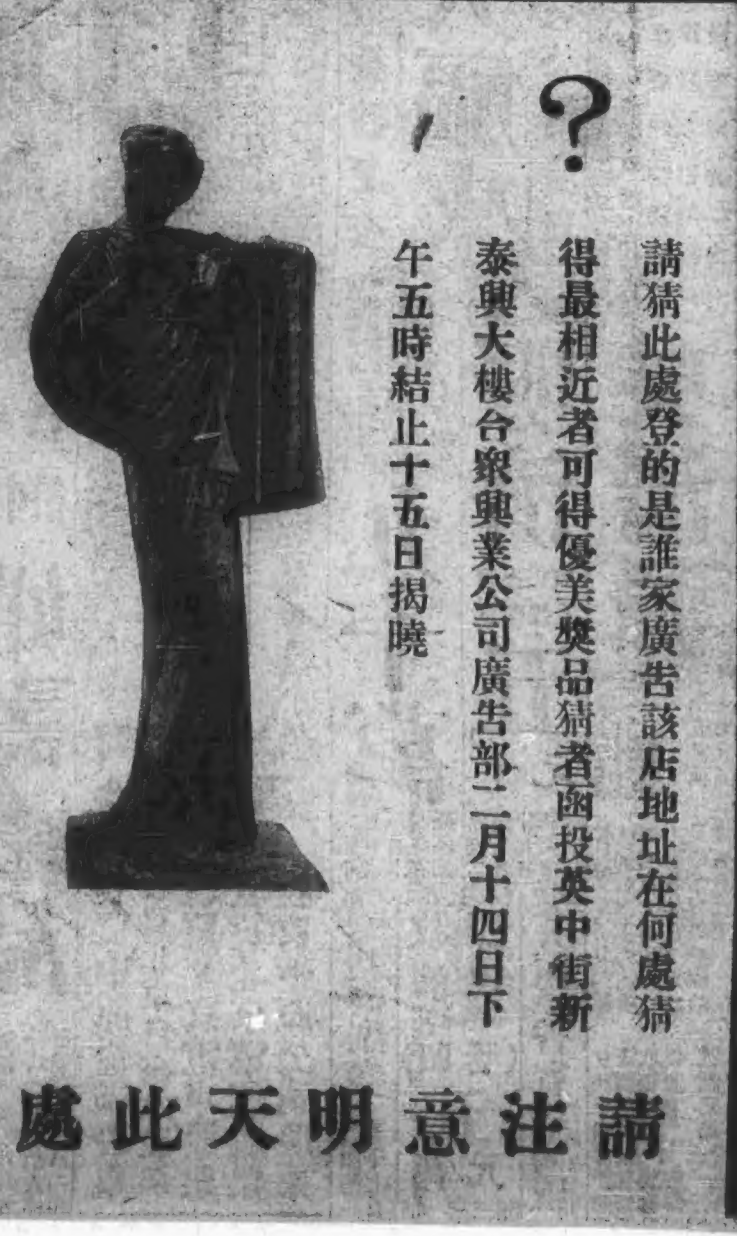 ?
請猜此處登的是誰家廣告該店地址在何處猜
得最相近者可得優美獎品猜者函投英中街新
泰興大樓台衆興業公司廣告部二月十四日下
午五時結止十五日揭曉
請注意明天此處